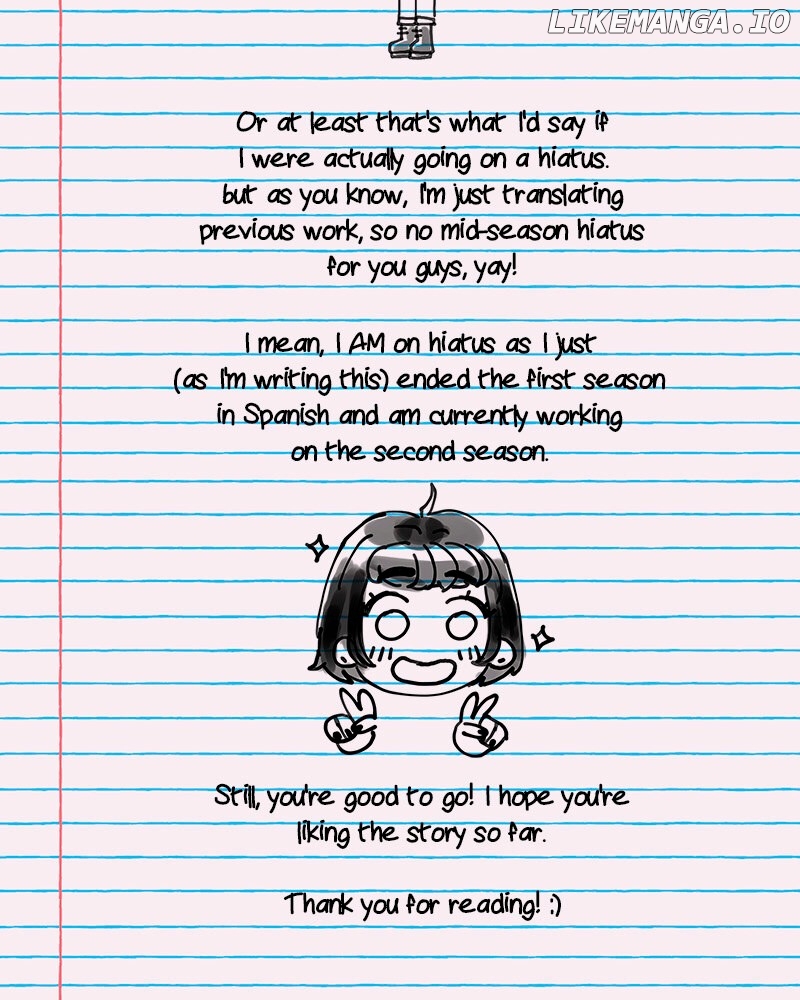 LIKEMANGA.IO
Or at least that's what I'd say if
I were actually going on a hiatus.
but as you know, I'm just translating
previous work, so no mid-season hiatus
for you guys, yay!
I mean, I AM on hiatus as I just
(as I'm writing this) ended the first season
in Spanish and am currently working
on the second season.
Still, you're good to go! I hope you're
liking the story so far.
Thank you for reading! :)